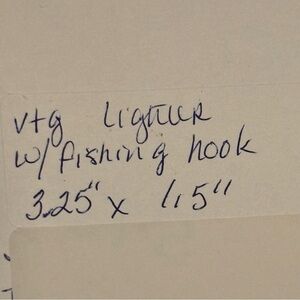 vtg Lighter
w/ fishing hook
3.25" x 1.5"